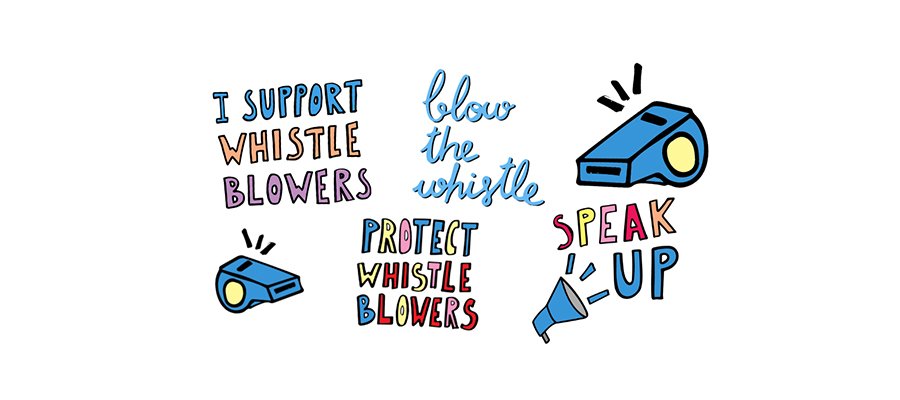 I SUPPORT
WHISTLE
BLOWERS
blow
the
whistle
PROTECT
WHISTLE
BLOWERS
SPEAK
UP